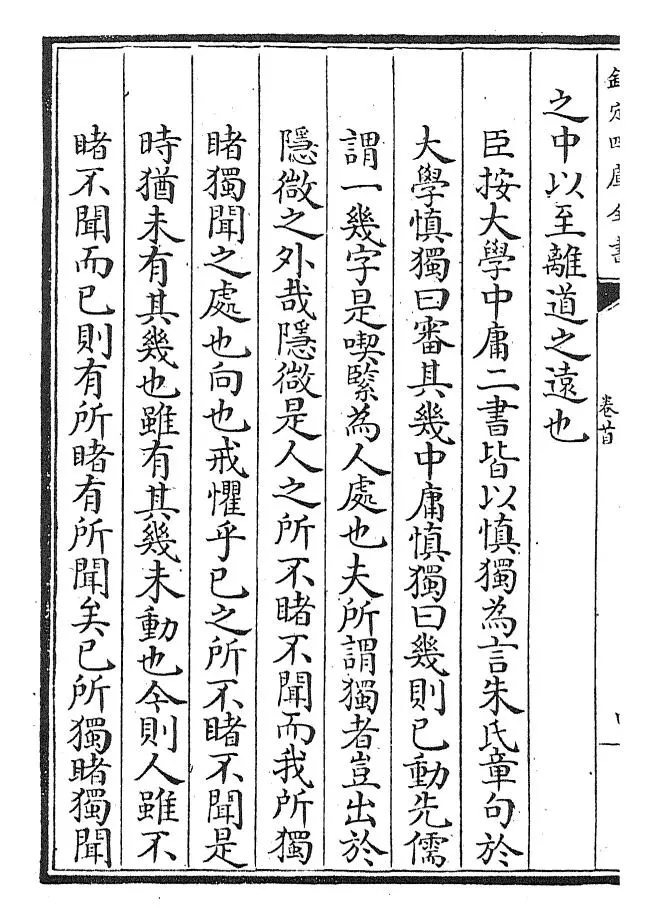 欽定四庫全書
卷首
之中以至離道之遠也
臣按大學中庸二書皆以慎獨為言朱氏章句於
大學慎獨曰審其幾中庸慎獨曰幾則已動先儒
謂一幾字是喫緊為人處也夫所謂獨者豈出於
隱微之外哉隱微是人之所不睹不聞而我所獨
睹獨聞之處也向也戒懼乎已之所不睹不聞是
時猶未有其幾也雖有其幾未動也今則人雖不
睹不聞而已則有所睹有所聞矣已所獨睹獨聞